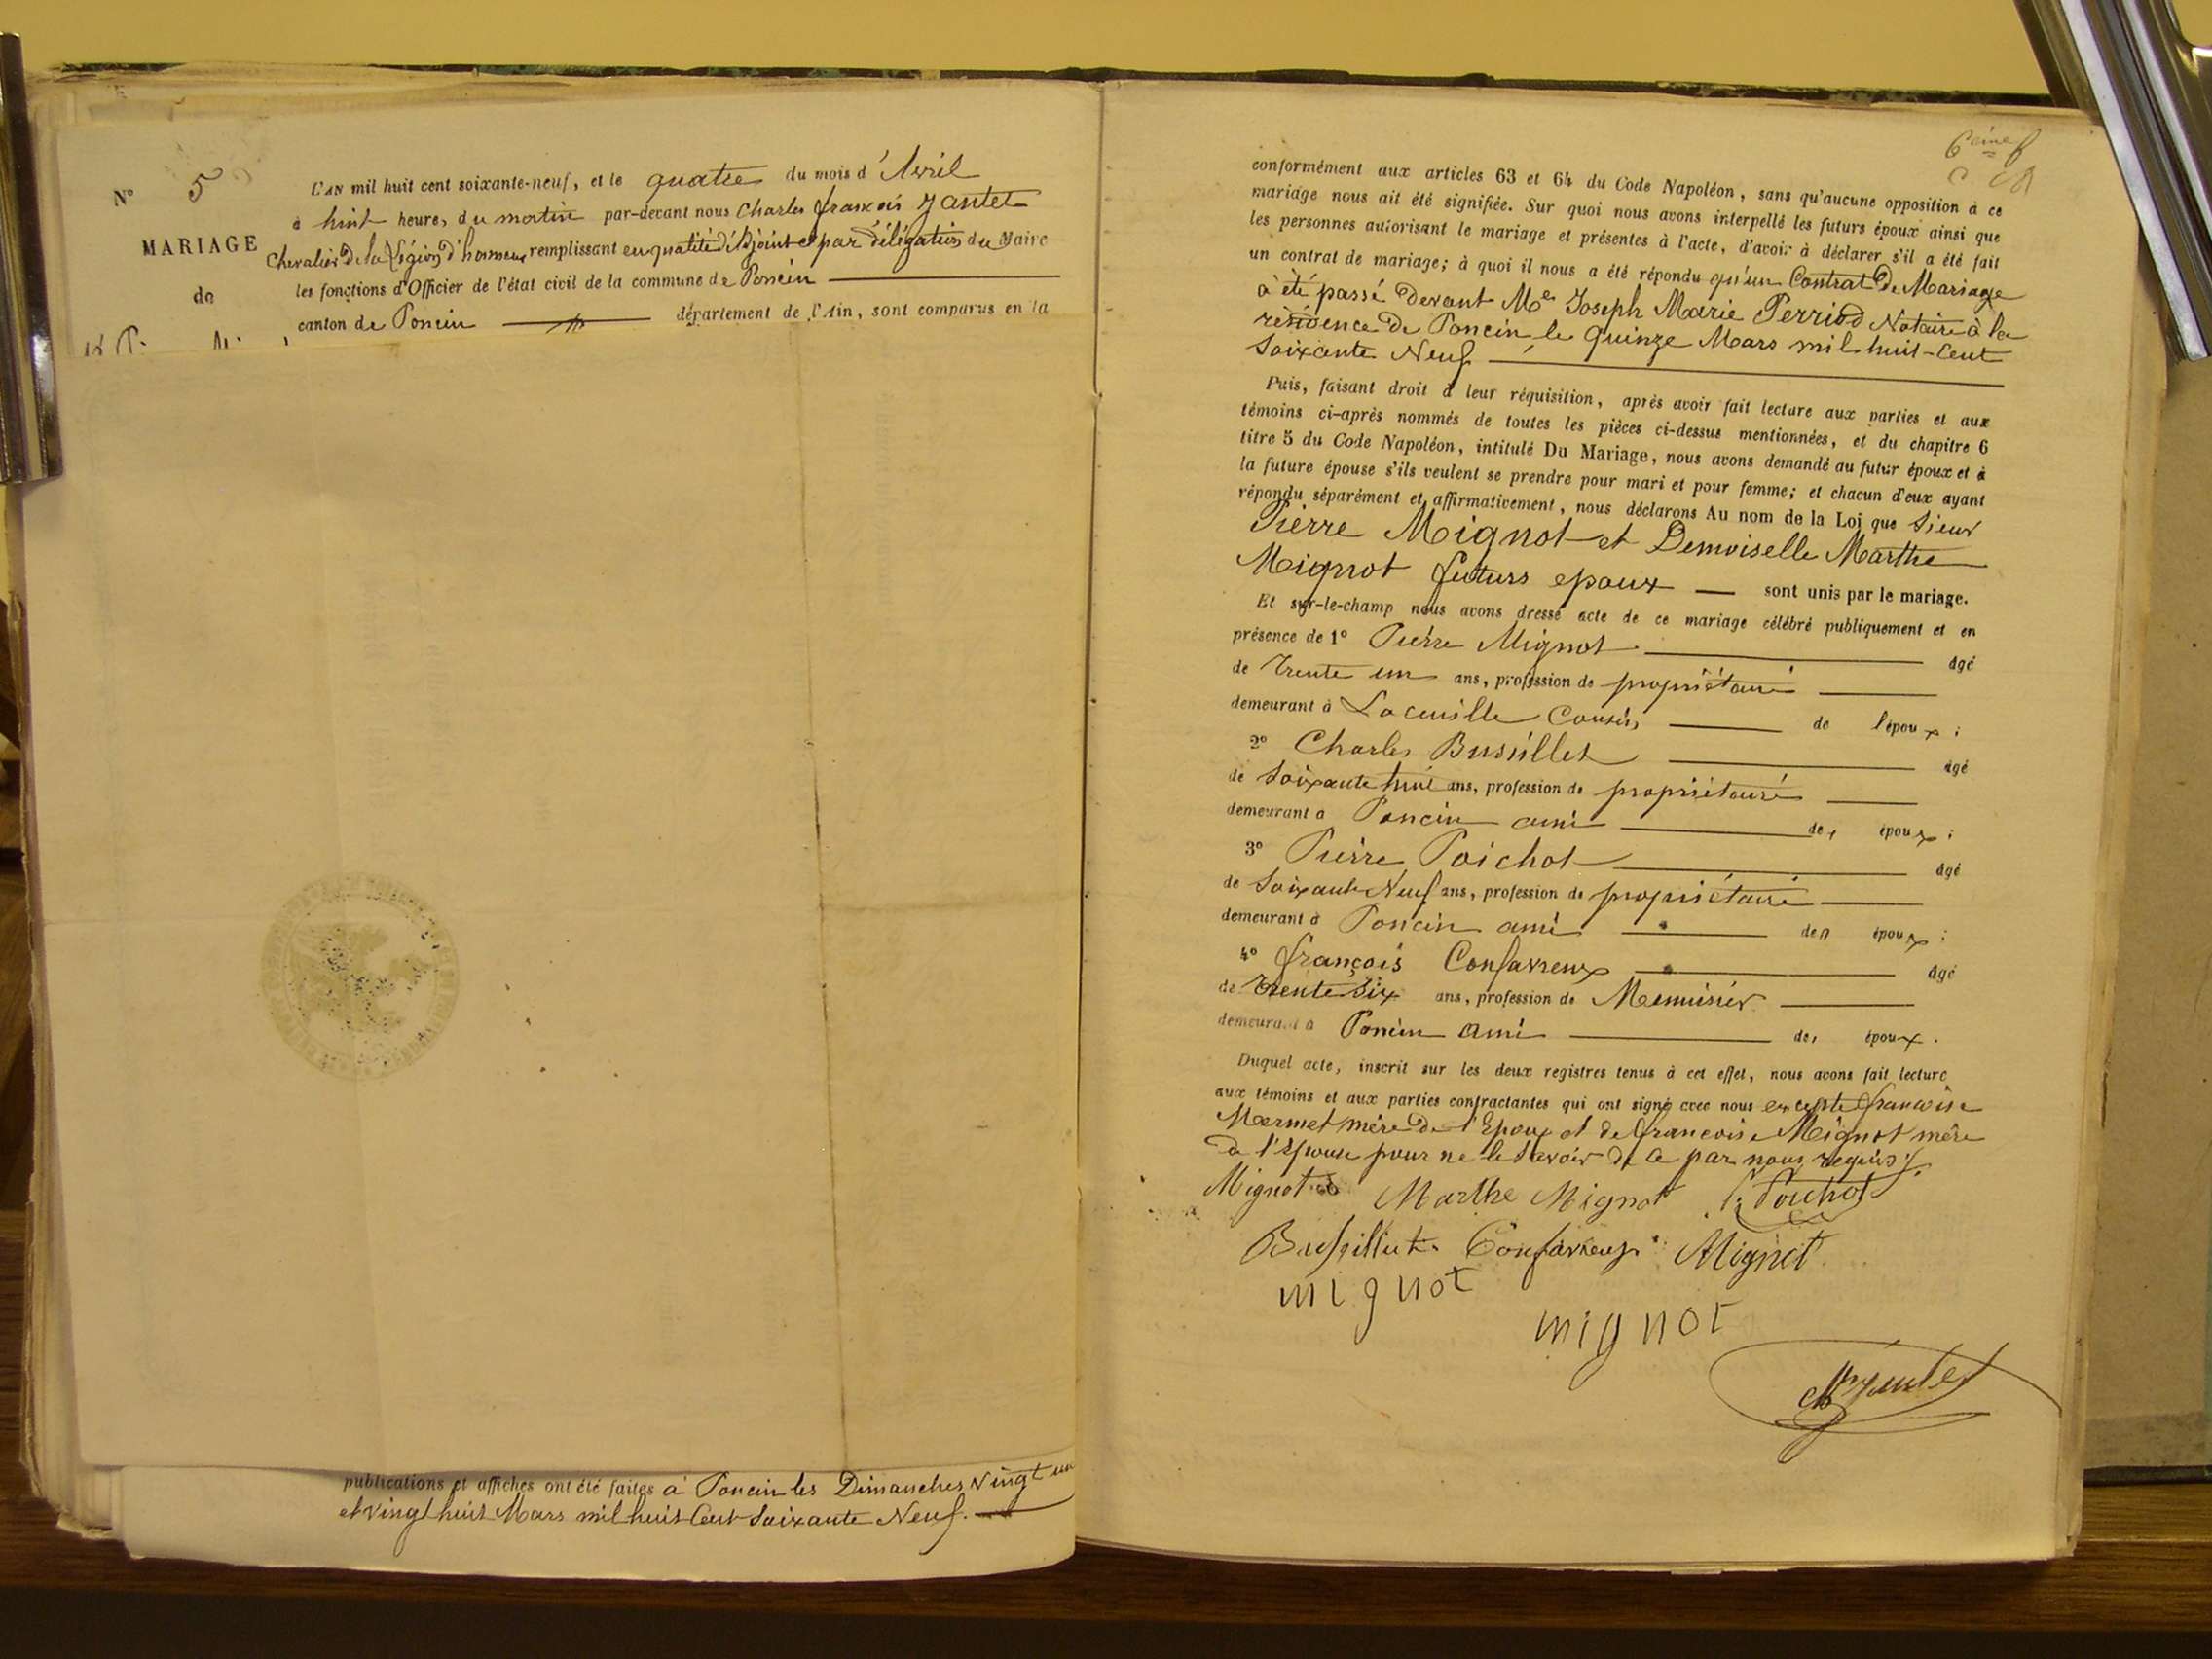 N° 5
MARIAGE
de
L'AN mil huit cent soixante-neuf, et le quatre du mois d'Avril
à huit heures du matin par-devant nous Charles françois Jantet
Chevalier de la Légion d'honneur remplissant en qualité d'Adjoint et par délégation du Maire
les fonctions d'Officier de l'état civil de la commune de Poncin
canton de Poncin département de l'Ain, sont comparus en la
publications et affiches ont été faites à Poncin les Dimanches vingt un
et vingt huit Mars mil huit Cent Soixante Neuf.
conformément aux articles 63 et 64 du Code Napoléon, sans qu'aucune opposition à ce
mariage nous ait été signifiée. Sur quoi nous avons interpellé les futurs époux ainsi que
les personnes autorisant le mariage et présentes à l'acte, d'avoir à déclarer s'il a été fait
un contrat de mariage; à quoi il nous a été répondu qu'un Contrat de Mariage
à été passé devant Me Joseph Marie Perriod Notaire à la
résidence de Poncin le quinze Mars mil huit-cent
Soixante Neuf
Puis, faisant droit à leur réquisition, après avoir fait lecture aux parties et aux
témoins ci-après nommés de toutes les pièces ci-dessus mentionnées, et du chapitre 6
titre 5 du Code Napoléon, intitulé Du Mariage, nous avons demandé au futur époux et à
la future épouse s'ils veulent se prendre pour mari et pour femme; et chacun d'eux ayant
répondu séparément et affirmativement, nous déclarons Au nom de la Loi que Sieur
Pierre Mignot et Demoiselle Marthe
Mignot futurs epoux sont unis par le mariage.
Et sur-le-champ nous avons dressé acte de ce mariage célébré publiquement et en
présence de 1° Pierre Mignot âgé
de trente un ans, profession de propriétaire
demeurant à Lacueille Cousin de l'époux;
2° Charles Busillet âgé
de Soixante huit ans, profession de propriétaire
demeurant à Poncin ami des époux;
3° Pierre Poichot âgé
de Soixante Neuf ans, profession de propriétaire
demeurant à Poncin ami des époux;
4° françois Confavreux âgé
de trente Six ans, profession de Menuisier
demeurant à Poncin ami des époux.
Duquel acte, inscrit sur les deux registres tenus à cet effet, nous avons fait lecture
aux témoins et aux parties contractantes qui ont signé avec nous excepté françoise
Mermet mère de l'Epoux et de françoise Mignot mère
de l'Epouse pour ne le Savoir de ce par nous requis.
Mignot Marthe Mignot P. Poichot
Bussillet Confavreux Mignot
mignot
mignot
Ch Jantet